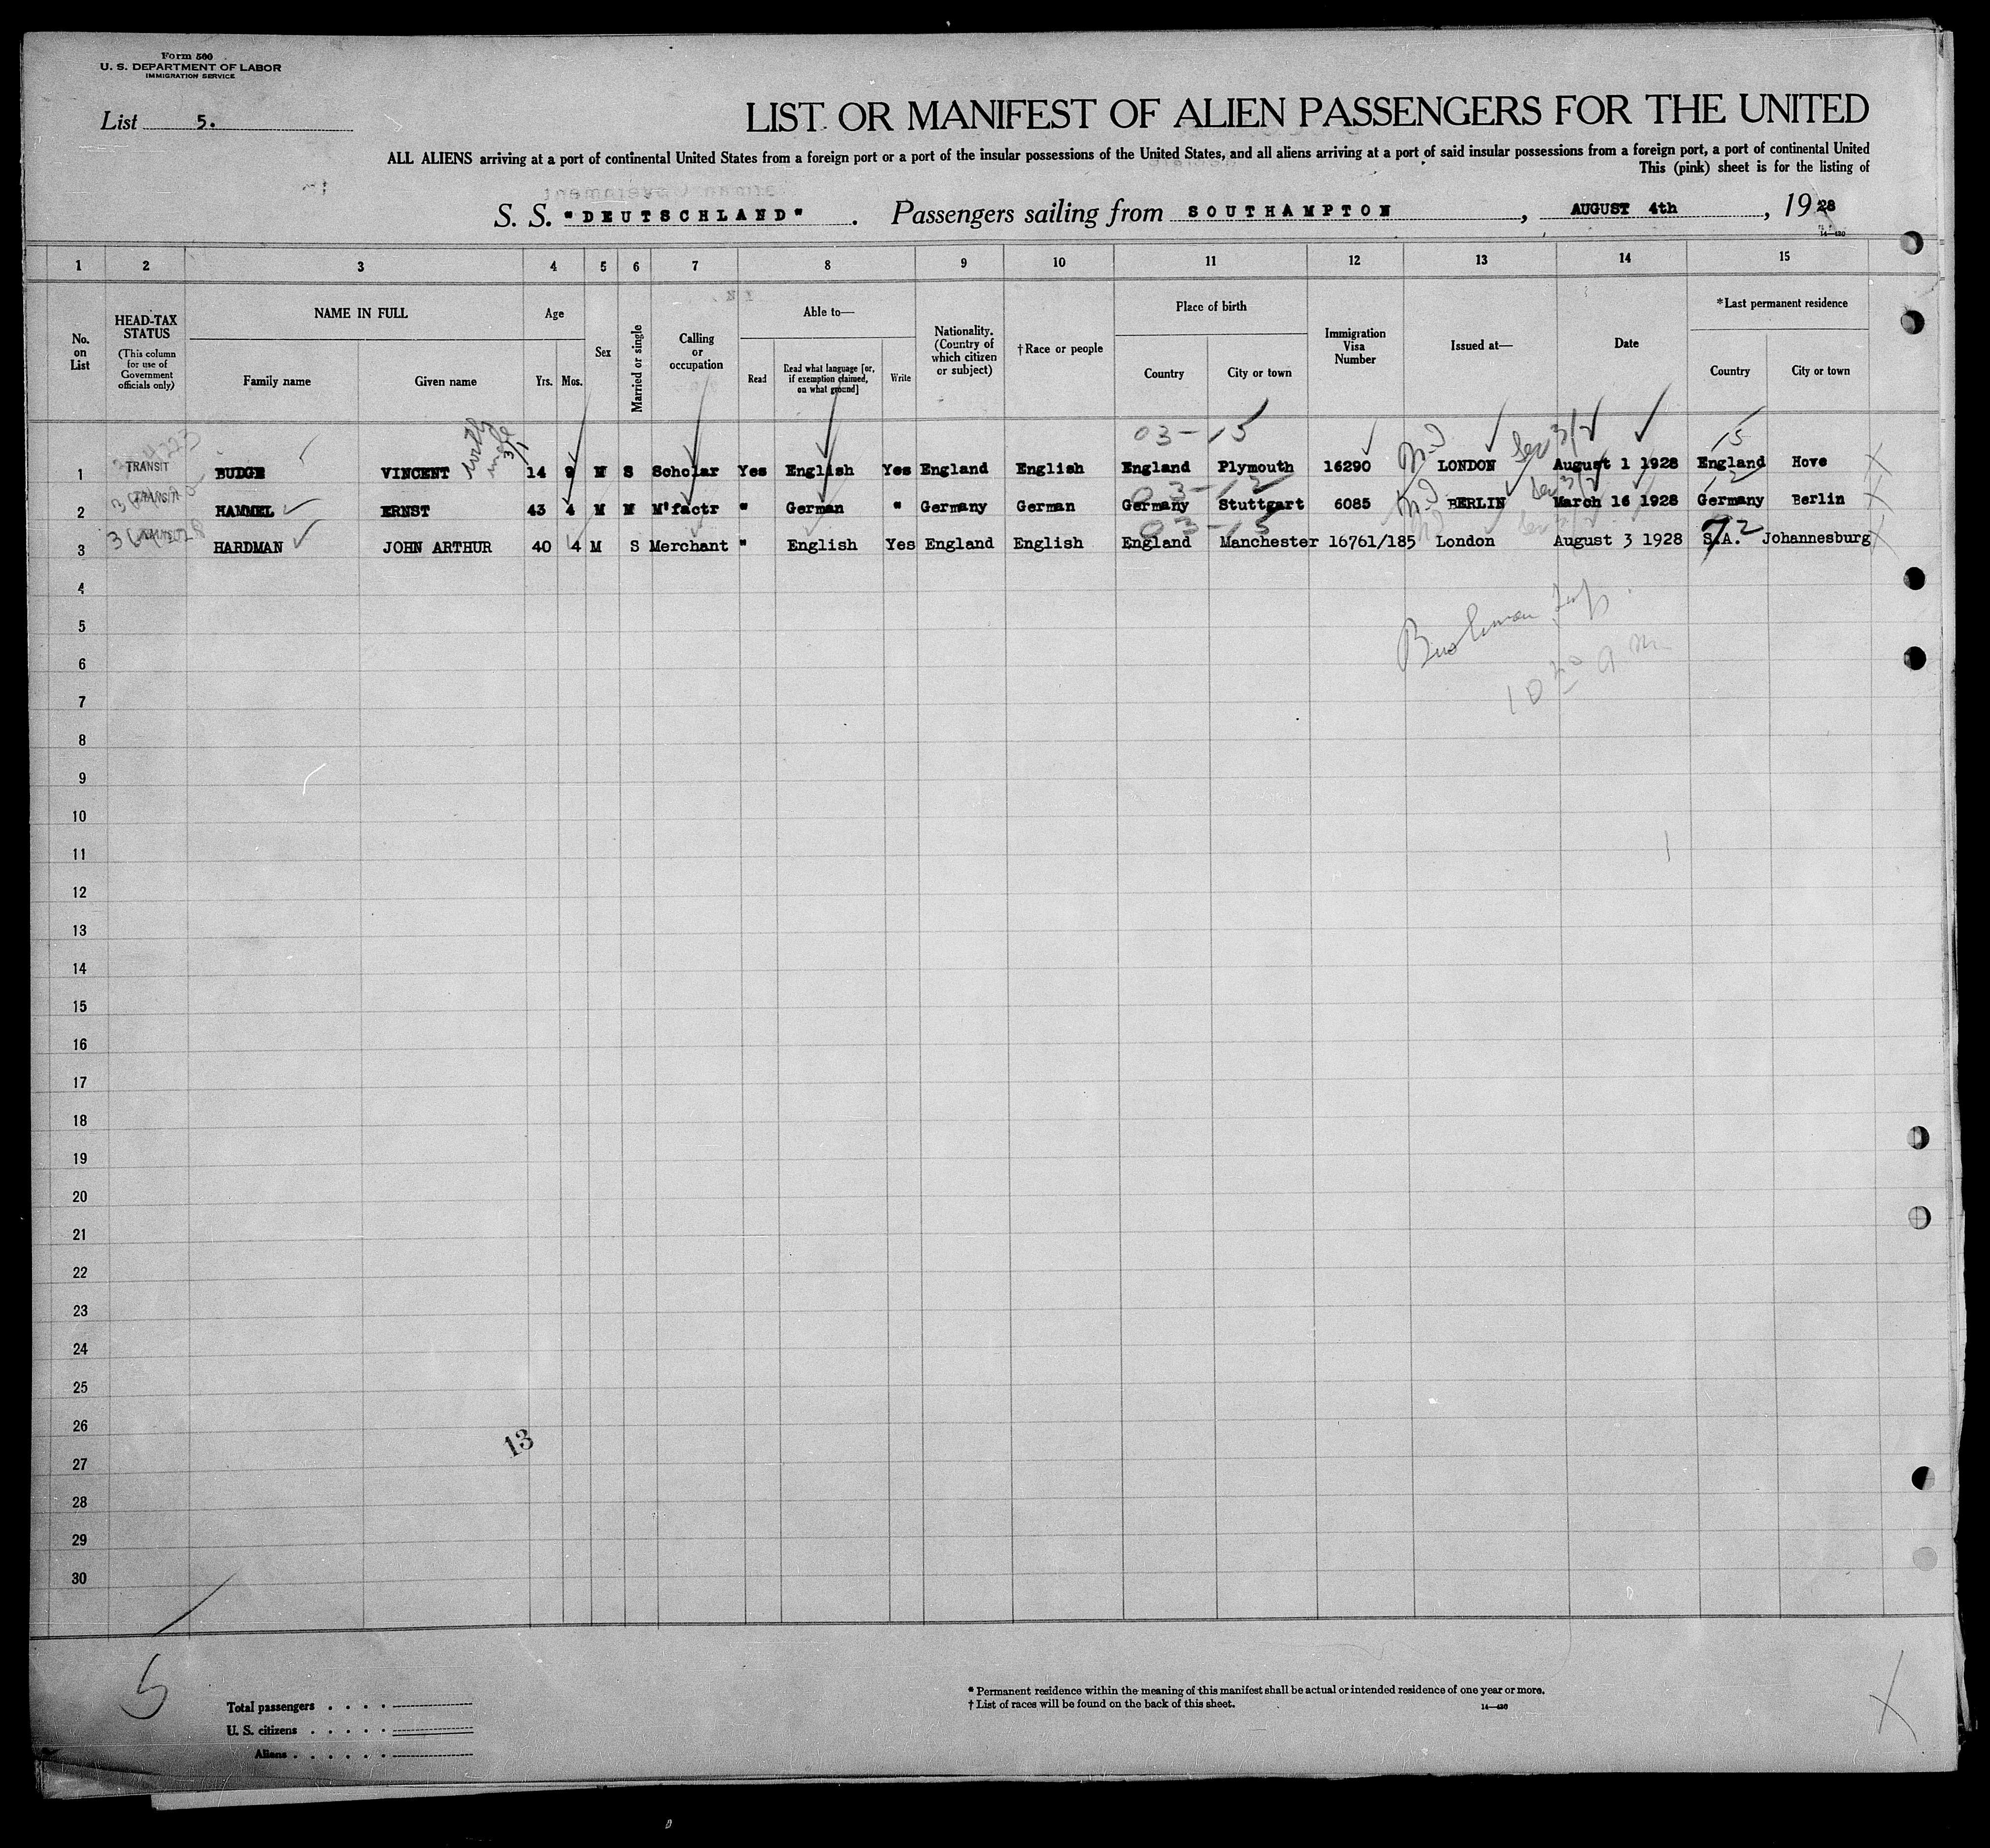 Form 500
U. S. DEPARTMENT OF LABOR
IMMIGRATION SERVICE
List 5.
LIST OR MANIFEST OF ALIEN PASSENGERS FOR THE UNITED
ALL ALIENS arriving at a port of continental United States from a foreign port or a port of the insular possessions of the United States, and all aliens arriving at a port of said insular possessions from a foreign port, a port of continental United
This (pink) sheet is for the listing of
S. S. "DEUTSCHLAND" . Passengers sailing from SOUTHAMPTON , AUGUST 4th , 1928
14—430
1 2 3 4 5 6 7 8 9 10 11 12 13 14 15
No. on List
HEAD-TAX STATUS
(This column for use of Government officials only)
NAME IN FULL
Family name Given name
Age
Yrs. Mos.
Sex
Married or single
Calling or occupation
Able to—
Read
Read what language [or, if exemption claimed, on what ground]
Write
Nationality. (Country of which citizen or subject)
†Race or people
Place of birth
Country City or town
Immigration Visa Number
Issued at—
Date
*Last permanent residence
Country City or town
03-15 15
1 TRANSIT BUDGE VINCENT 14 9 M S Scholar Yes English Yes England English England Plymouth 16290 LONDON August 1 1928 England Hove
03-12 12
2 TRANSIT HAMMEL ERNST 43 4 M M M'factr " German " Germany German Germany Stuttgart 6085 BERLIN March 16 1928 Germany Berlin
03-15 72
3 HARDMAN JOHN ARTHUR 40 4 M S Merchant " English Yes England English England Manchester 16761/185 London August 3 1928 S.A. Johannesburg
4
5
6
7
8
9
10
11
12
13
14
15
16
17
18
19
20
21
22
23
24
25
26
13
27
28
29
30
5
Total passengers
U. S. citizens
Aliens
* Permanent residence within the meaning of this manifest shall be actual or intended residence of one year or more.
† List of races will be found on the back of this sheet.
14—430